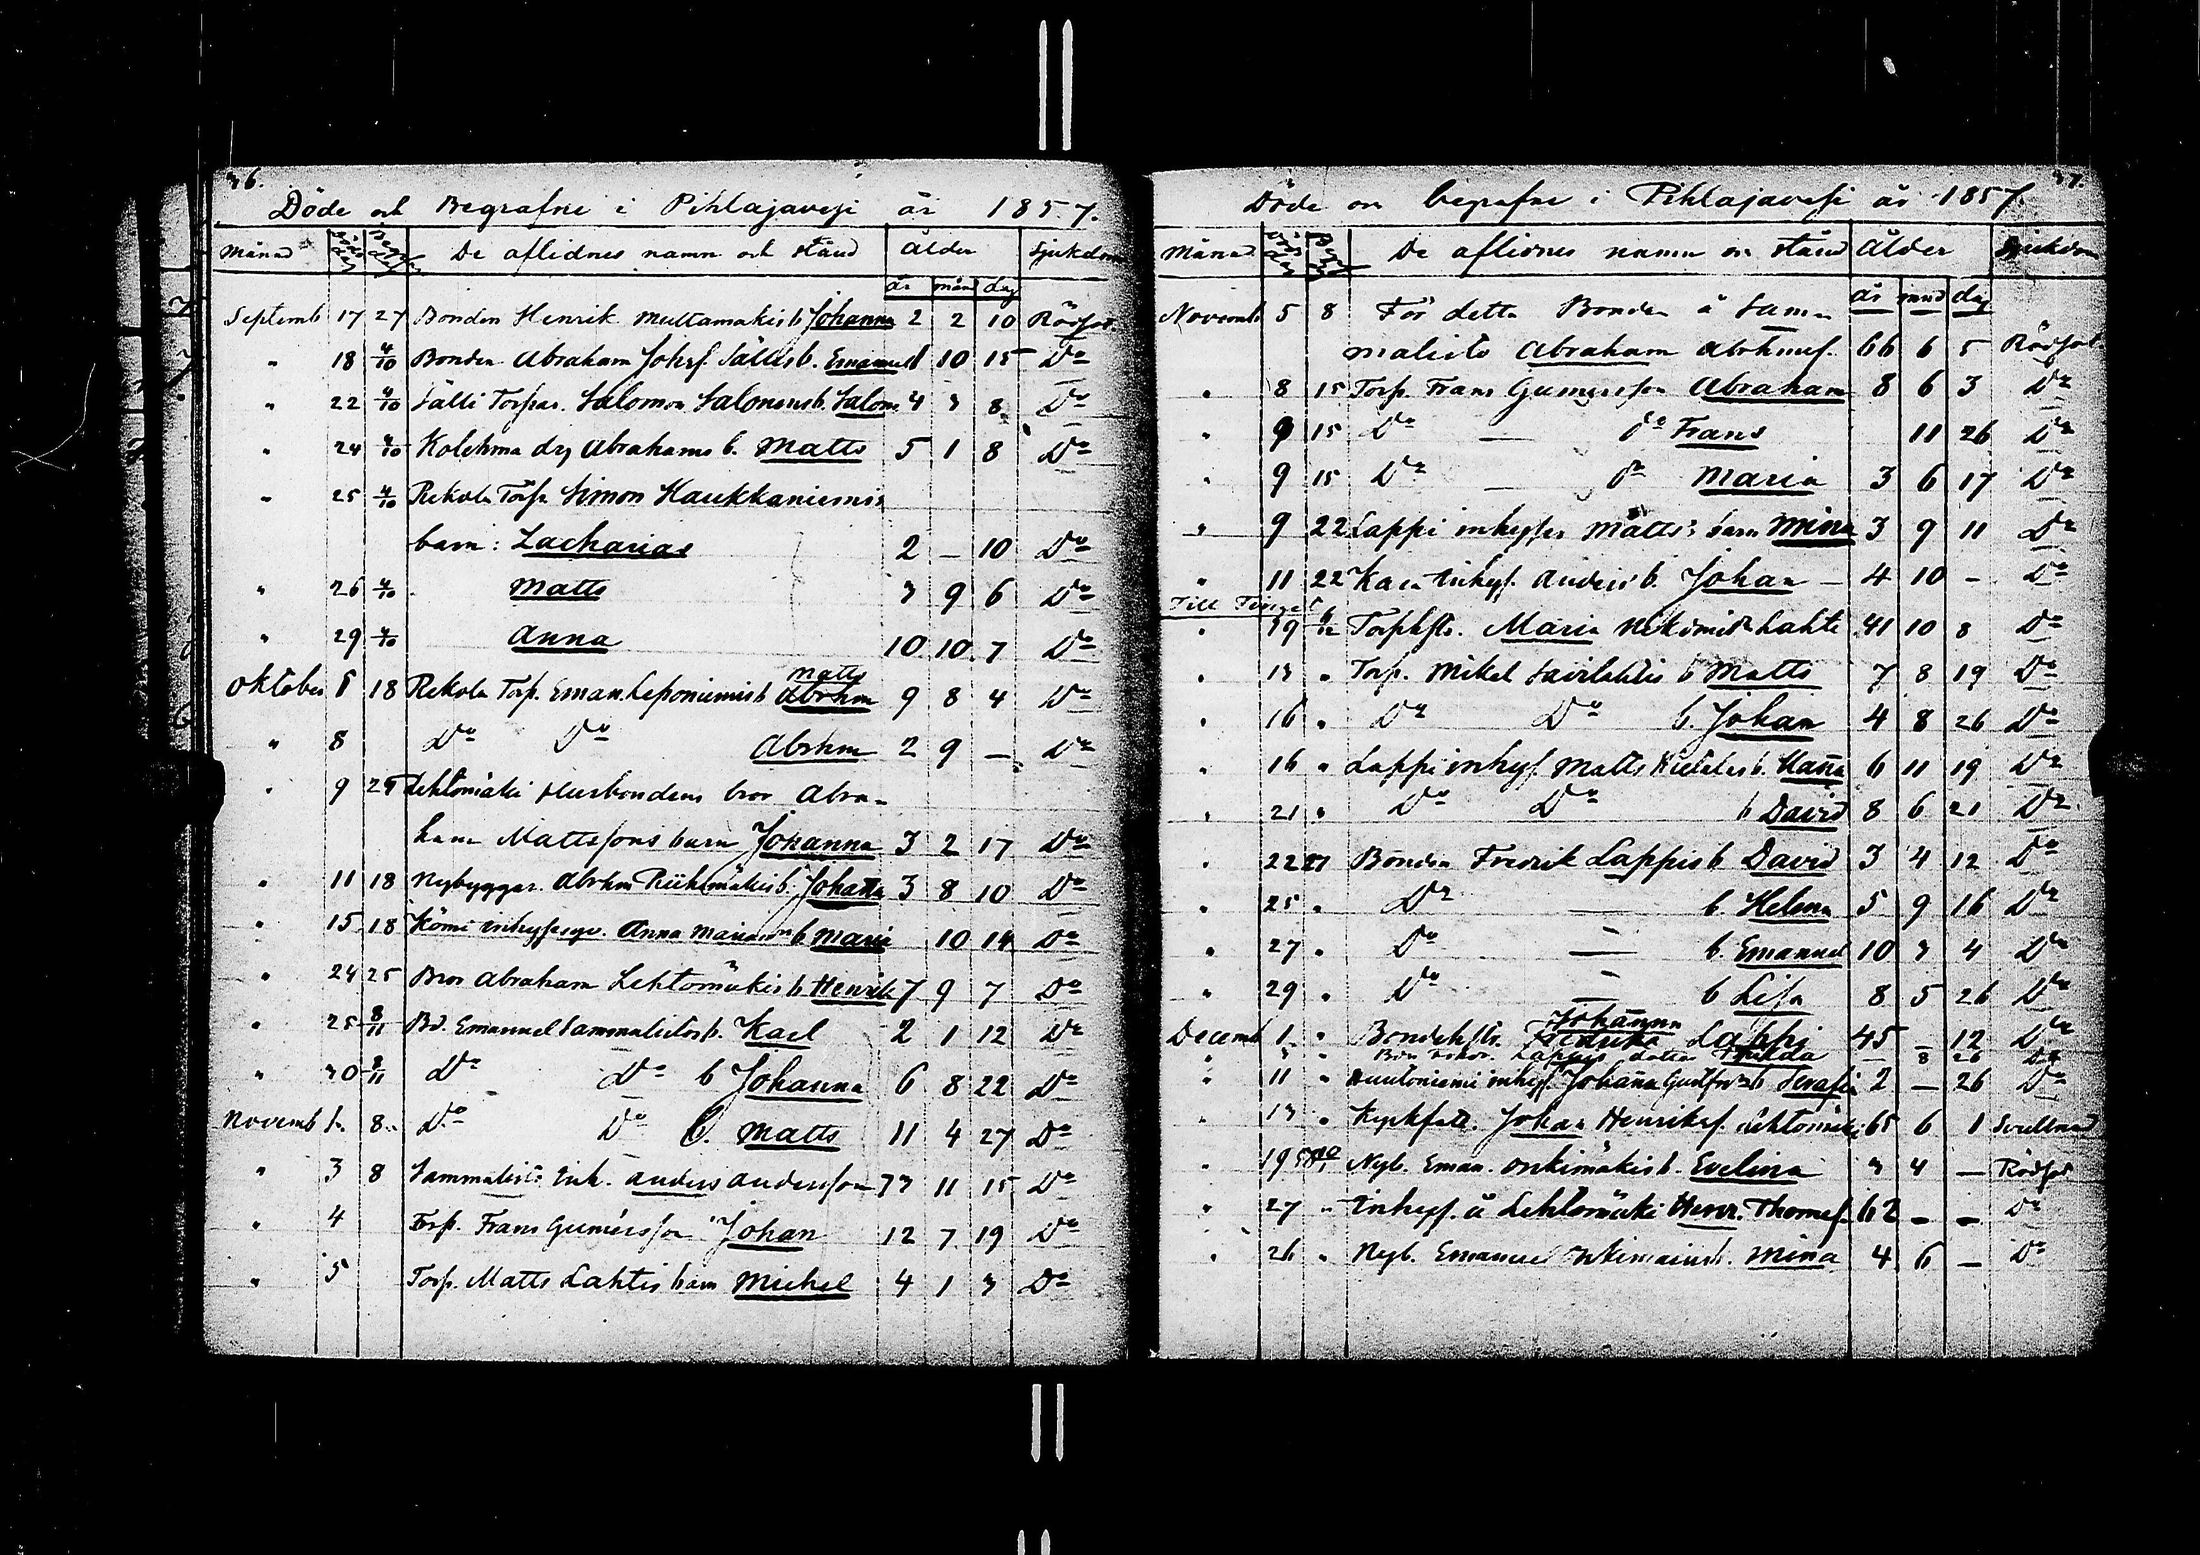 36.
Döde och Begrafne i Pihlajavesi år 1857.
Månad De aflidnes namn och stånd Ålder Sjukdom
år mån dag
Septemb 17 27 Bonden Henrik Multamäkis b Johanna 2 2 10 Rödsot
" 18 4/10 Bonden Abraham Johsf. Sällis b. Emanuel 1 10 15 Do
" 22 4/10 Sälli Torpar. Salomon Salonens b. Salom. 4 3 8 Do
" 24 4/10 Kolehma drg Abrahams b. Matts 5 1 8 Do
" 25 4/10 Rekola Torp. Simon Haukkaniemis
barn: Zacharias 2 — 10 Do
" 26 4/10 Matts 3 9 6 Do
" 29 4/10 Anna 10 10 7 Do
Matts
Oktober 8 18 Rekola Torp. Eman. Leponiemis b Abrhm 9 8 4 Do
" 8 Do Do Abrhm 2 9 — Do
" 9 25 Lehtomäki Husbondens bror Abra-
ham Mattssons barn Johanna 3 2 17 Do
" 11 18 Nybyggar. Abrhm Riihimäkis b. Johanna 3 8 10 Do
" 15 18 Kömi inhyseqv. Anna b Maria 10 14 Do
" 24 25 Bror Abraham Lehtomäkis b Henrik 7 9 7 Do
" 25 8/11 Bd. Emanuel Sammalistos b. Karl 2 1 12 Do
" 30 8/11 Do Do b Johanna 6 8 22 Do
Novemb 1. 8. Do Do b. Matts 11 4 27 Do
" 3 8 Sammalisto Enk. Anders Andersson 73 11 15 Do
" 4 Torp. Frans Gumersson Johan 12 7 19 Do
" 5 Torp. Matts Lahtis barn Michel 4 1 3 Do
37.
Döde och begrafne i Pihlajavesi år 1857.
Månad De aflidnes namn och stånd Ålder Sjukdom
år mnd dag
Novemb 5 8 För detta Bonden å Sam-
malisto Abraham Abrhmsf. 66 6 5 Rödsot
" 8 15 Torp. Frans Gumersson Abraham 8 6 3 Do
" 9 15 Do — do Frans 11 26 Do
" 9 15 Do — do Maria 3 6 17 Do
" 9 22 Lappi inhyses Matts's barn Mina 3 9 11 Do
" 11 22 Inhys. Anders b. Johan — 4 10 - Do
Till Tinget
" 19 Torphstr. Maria lahti 41 10 8 Do
" 13 " Torp. Mikel Savilahtis b Matts 7 8 19 Do
" 16 " Do Do b. Johan 4 8 26 Do
" 16 " Lappi inhys. Matts b. Hanna 6 11 19 Do
" 21 " Do Do b David 8 6 21 Do
" 22 27 Bonden Fredrik Lappis b David 3 4 12 Do
" 25 " Do — b. Helena 5 9 16 Do
" 27 " Do — b. Emanuel 10 3 4 Do
" 29 " Do — b Lisa 8 5 26 Do
Johanna
Decemb 1 " Bondehstr. Fredrika Lappi 45 — 12 Do
" 3 " Lappis dotter Hulda — 8 26 Do
" 11 " Huutoniemi inhys. Johanna b Serafia 2 — 26 Do
" 13 " Kyrkfatt. Johan Henriksf. Lehtomäki 65 6 1 Svullnad
" 19 Nyb. Eman. Onkimäkis b. Evelina 3 4 — Rödsot
" 27 " Inhys. å Lehtomäki Henr. Thomsf. 62 — — Do
" 26 " Nyb. Emanuel b. Mina 4 6 — Do